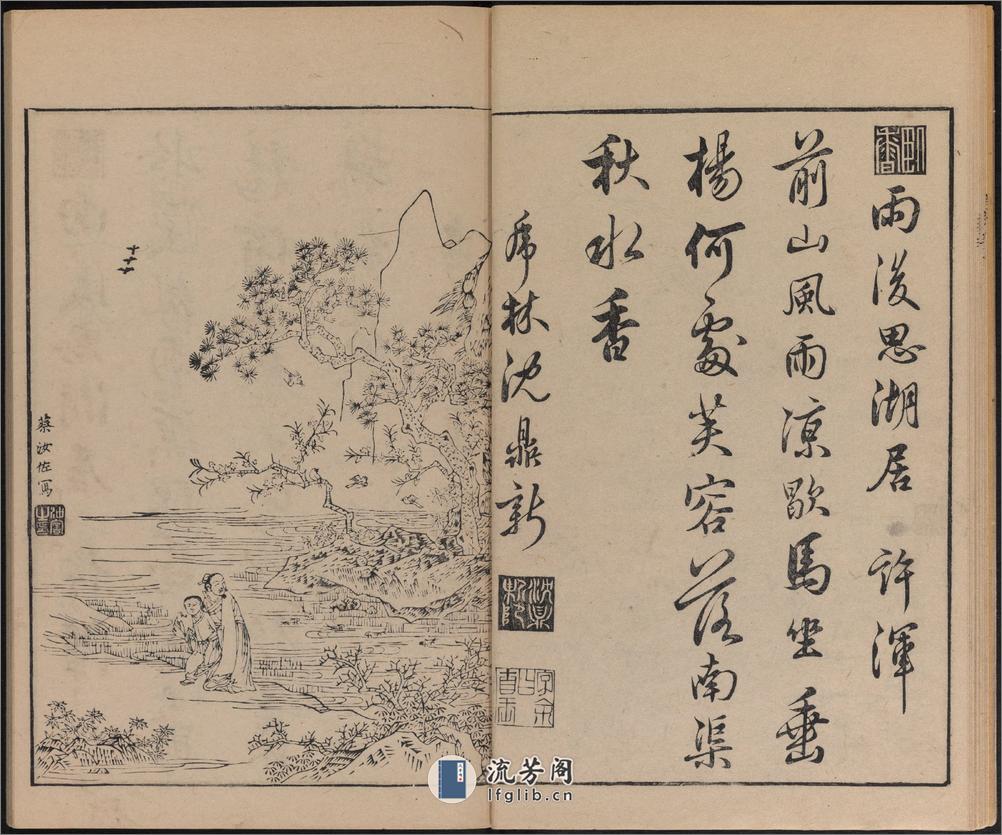 雨後思湖居 許渾
前山風雨涼歇馬坐垂
楊何處芙容落南渠
秋水香
沈鼎新
蔡汝佐寫
流芳阁
lfglib.cn